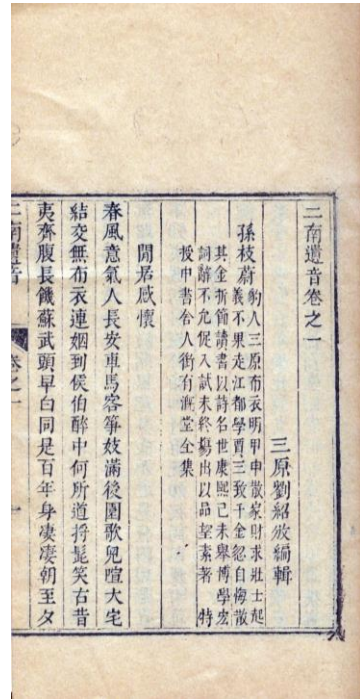 二南遺音卷之一
三原劉紹攽編輯
孫枝蔚
豹人三原布衣明甲申散家財求壯士起
義不果走江都學賈三致千金忽自悔散
其金折節讀書以詩名世康熙己未舉博學宏
詞辭不允促入試未終幅出以品望素著 特
授中書舍人銜有溉堂全集
閒居感懷
春風意氣人長安車馬客箏妓滿後園歌兒喧大宅
結交無布衣連姻到侯伯醉中何所道捋髭笑古昔
夷齊腹長餓蘇武頭早白同是百年身凄凄朝至夕
二南遺音
卷之一
一